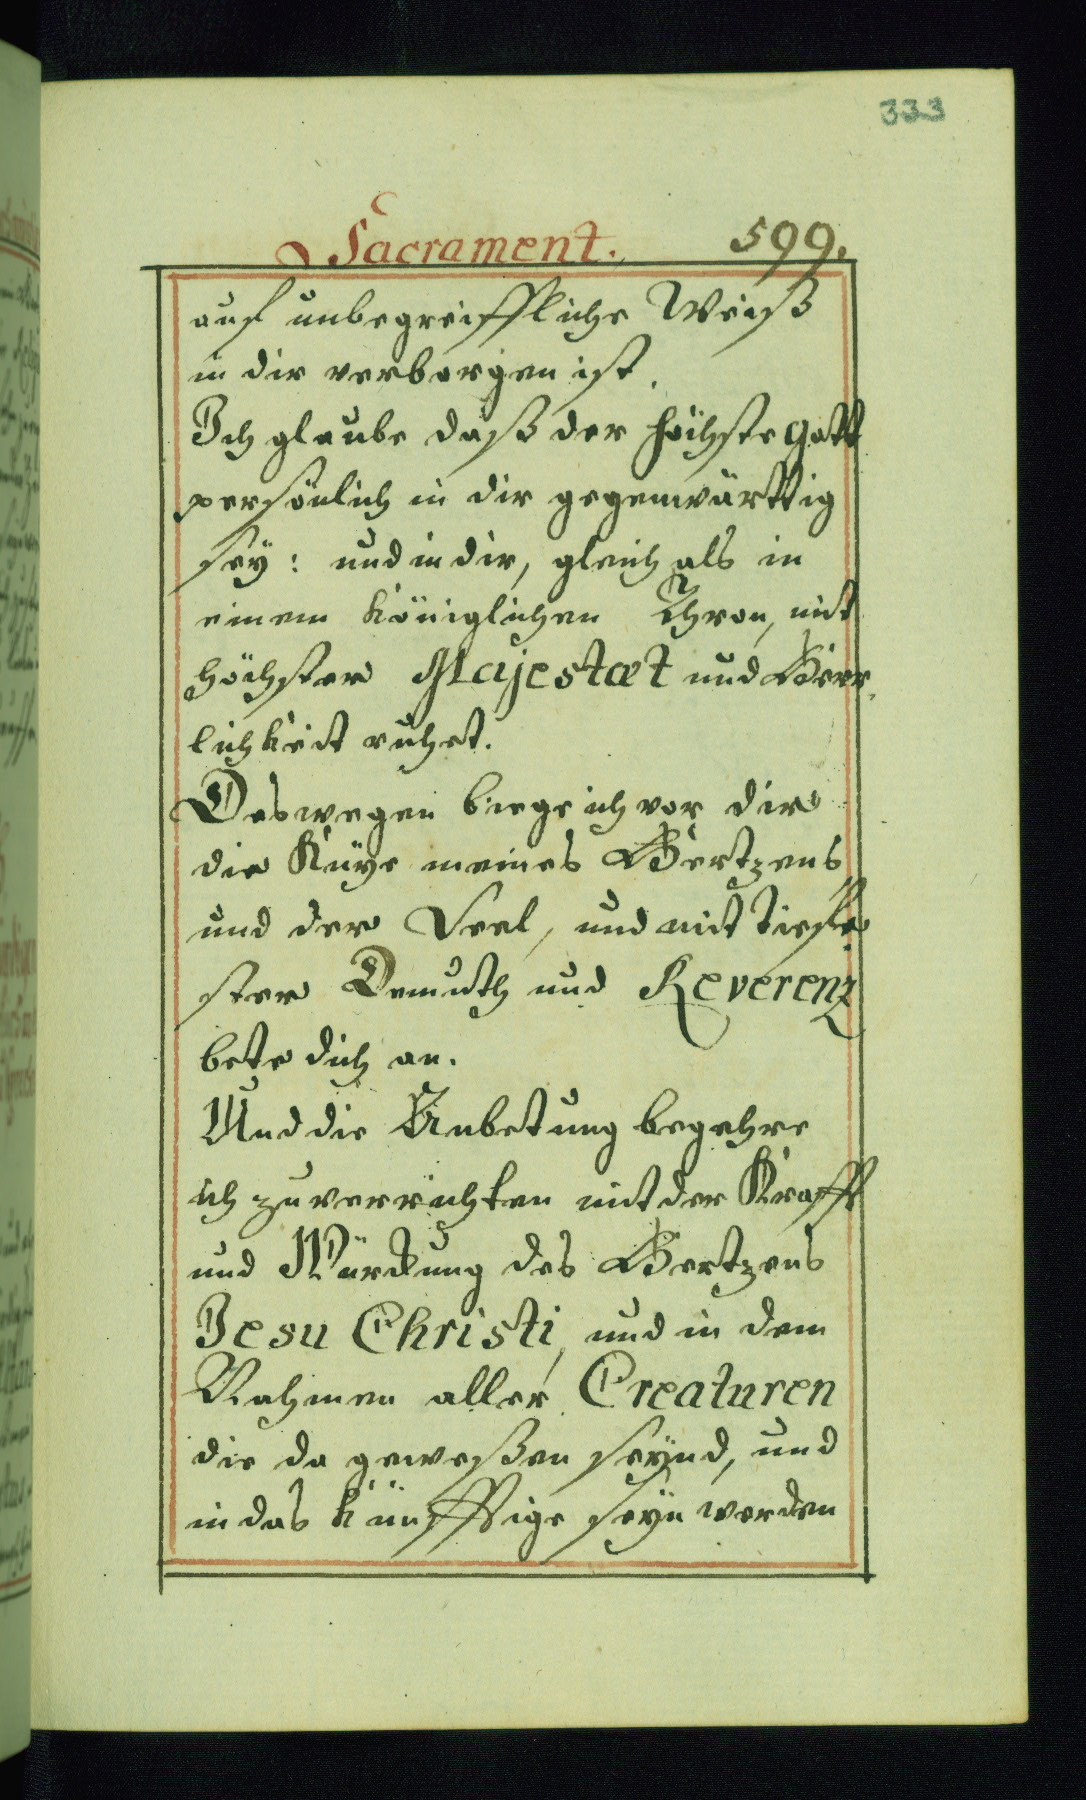 333
Sacrament. 599.
auf unbegreiffliche Weiß
in dir verborgen ist.
Ich glaube daß der höchste Gott
persönlich in dir gegenwärttig
seÿ: und in dir, gleich als in
einem königlichen Thron, mit
höchster Majestæt und Herr,
lichkeit ruhet.
Deswegen biege ich vor dir
die Knÿe meines Hertzens
und der Seel, und mit tieff,
ster Demuth und Reverenz
bete dich an.
Und die Anbetung begehre
ich zu verrichten mit der Krafft
und Würckung des Hertzens
Jesu Christi, und in dem
Nahmen aller Creaturen
die da geweßen seÿnd, und
in das künfftige seÿn werden